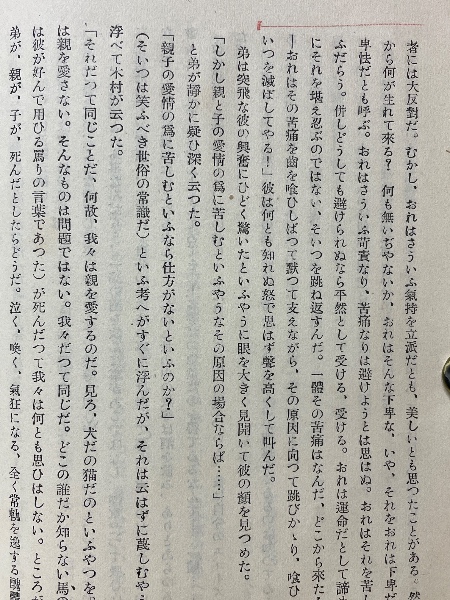 者には大反對だ。むかし、おれはさういふ氣持を立派だとも、美しいとも思つたことがある。然
から何が生れて來る？　何も無いぢやないか、おれはそんな下卑な、いや、それをおれは下卑だ
卑怯だとも呼ぶ。おれはさういふ苛責なり、苦痛なりは避けようとは思はぬ。おれはそれを苦し
ふだらう。併しどうしても避けられぬなら平然として受ける、受ける。おれは運命だとして諦め
にそれを堪え忍ぶのではない、そいつを跳ね返すんだ。一體その苦痛はなんだ、どこから來た
―おれはその苦痛を齒を喰ひしばつて默つて支えながら、その原因に向つて跳びかゝり、喰ひ
いつを滅ぼしてやる！」彼は何とも知れぬ怒で思はず聲を高くして叫んだ。
弟は突飛な彼の興奮にひどく驚いたといふやうに眼を大きく見開いて彼の顏を見つめた。
「しかし親と子の愛情の爲に苦しむといふやうなその原因の場合ならば……」
と弟が靜かに疑ひ深く云つた。
「親子の愛情の爲に苦しむといふなら仕方がないといふのか？」
（そいつは笑ふべき世俗の常識だ）といふ考へがすぐに浮んだが、それは云はずに蔑しむや
浮べて木村が云つた。
「それだつて同じことだ、何故、我々は親を愛するのだ。見ろ、犬だの猫だのといふやつを。
は親を愛さない。そんなものは問題ではない。我々だつて同じだ。どこの誰だか知らない馬の
は彼が好んで用ひる罵りの言葉であつた）が死んだつて我々は何とも思ひはしない。ところが
弟が、親が、子が、死んだとしたらどうだ。泣く、喚く、氣狂になる、全く常軌を逸する醜